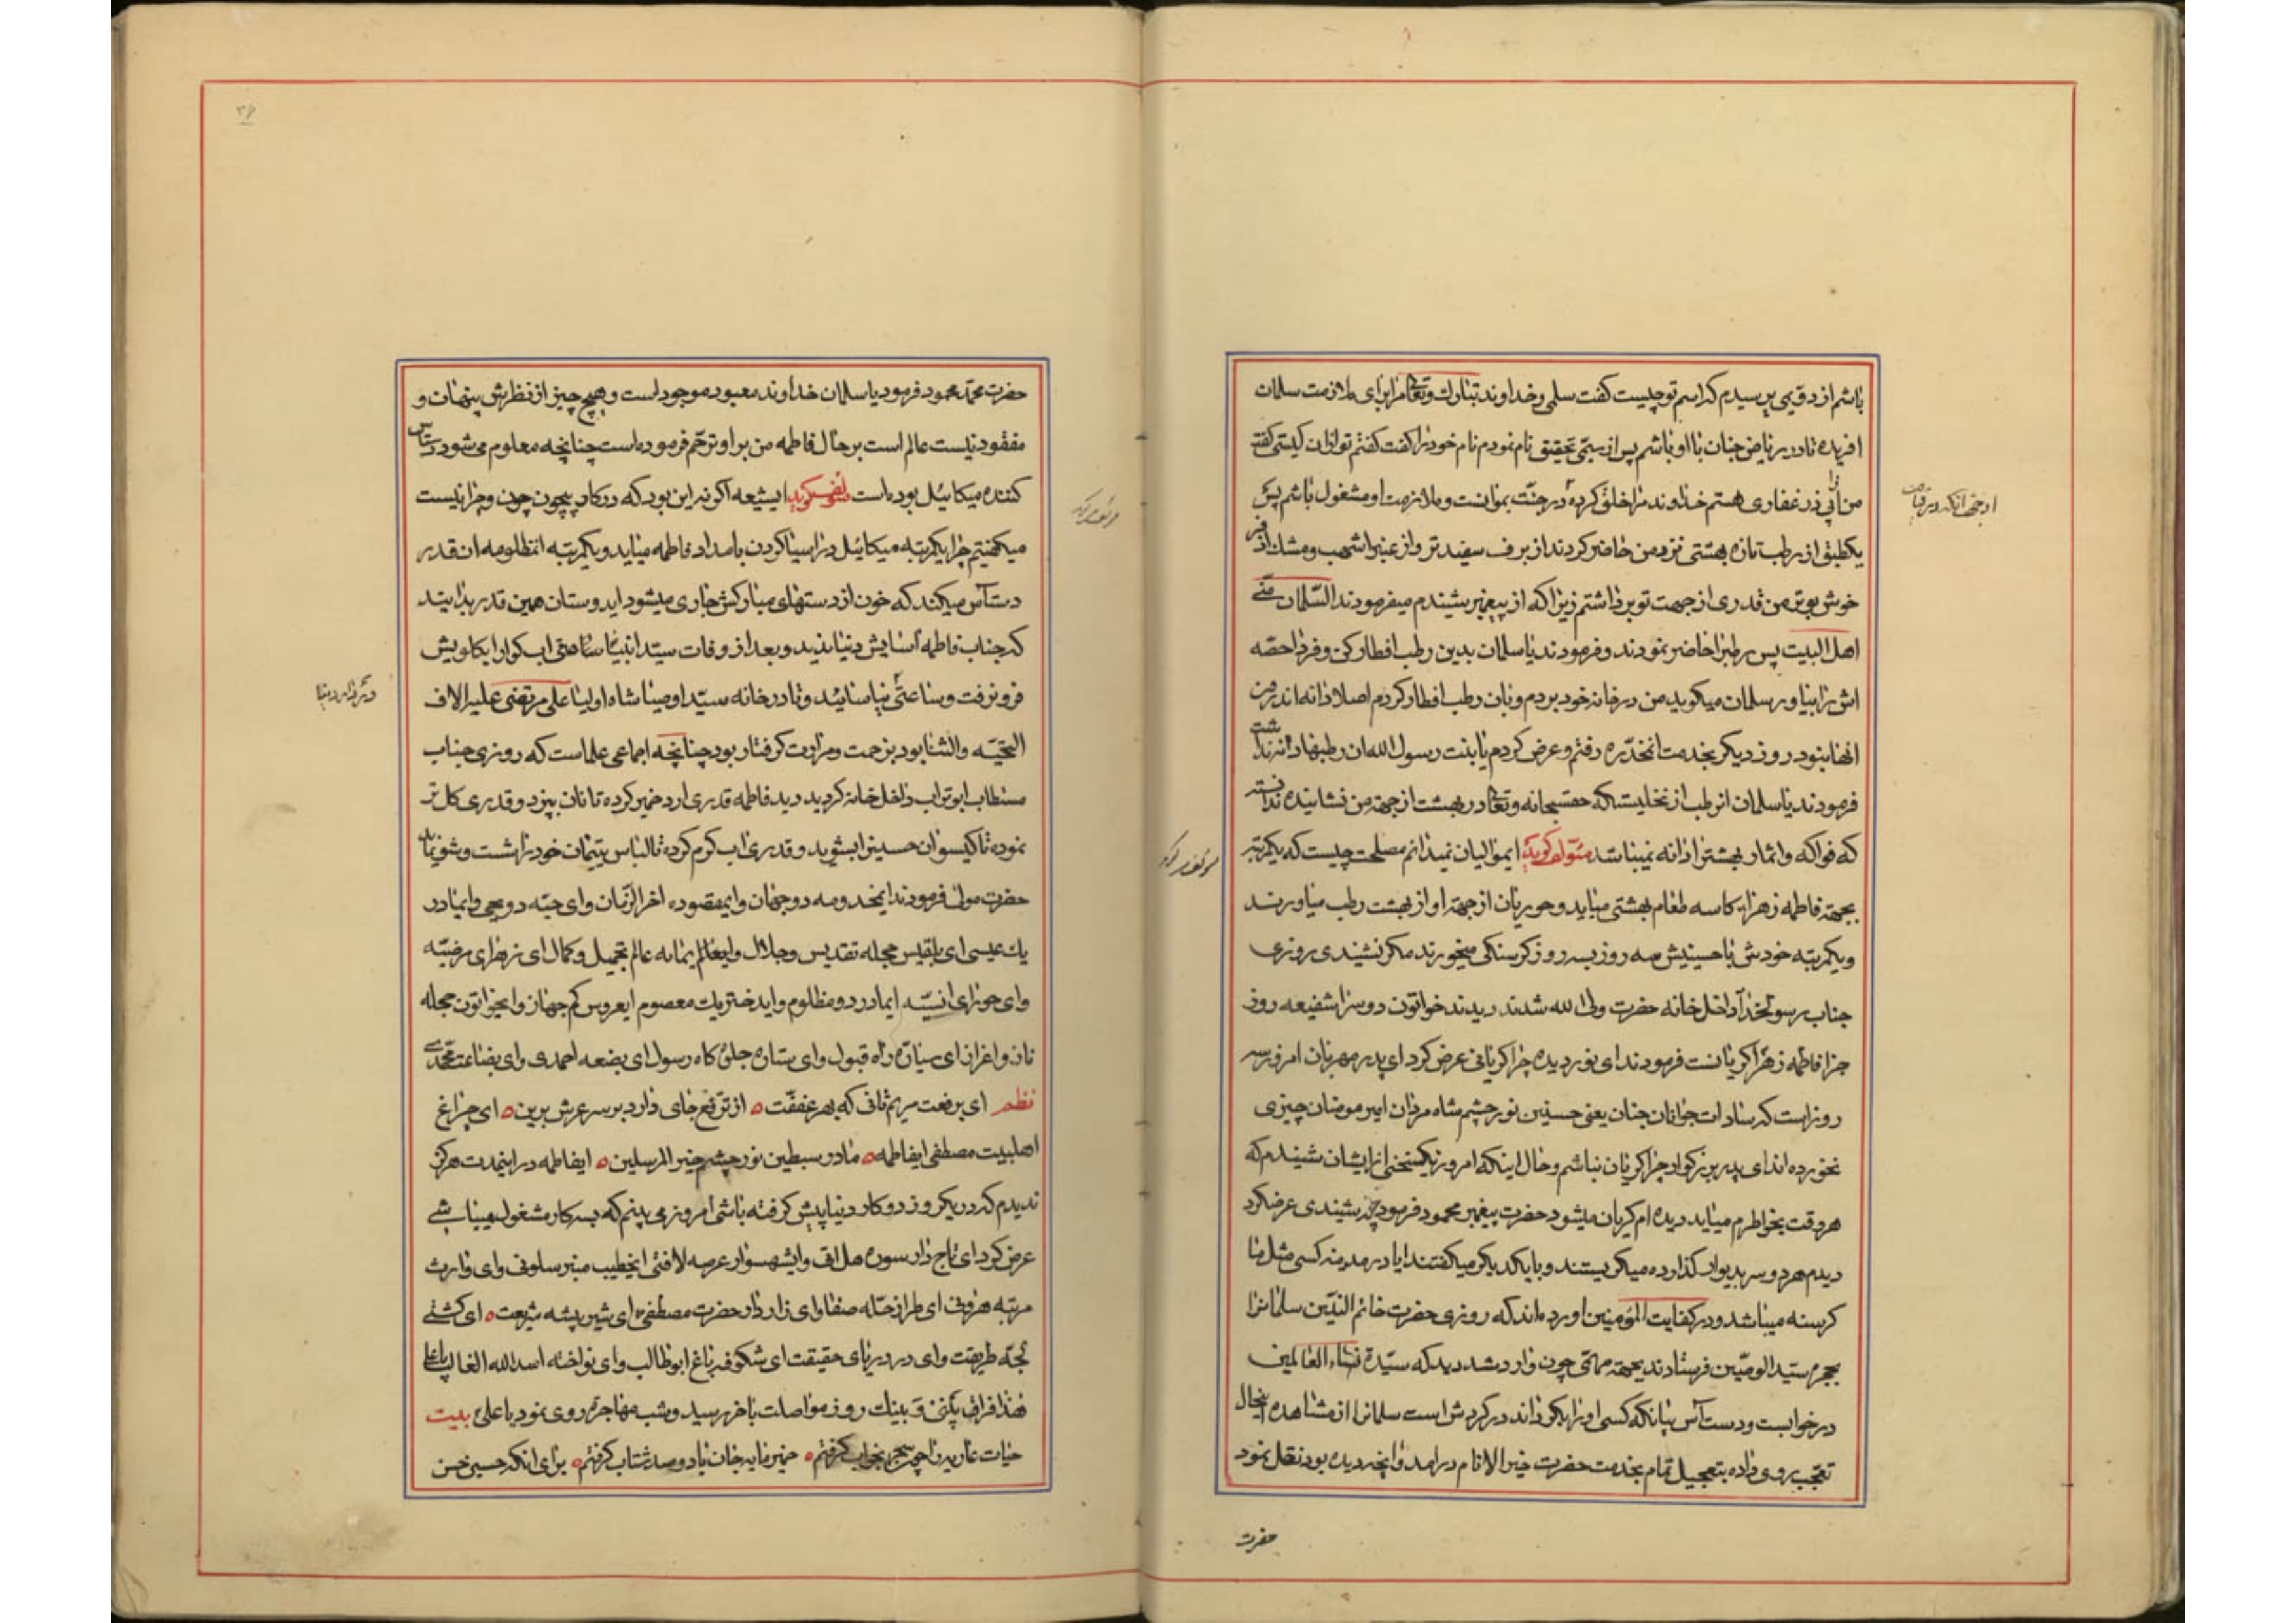 باشم از دومی پرسیدم که اسم تو چیست گفت سلمی و خداوند تبارک و تعالی مرا برای ملازمت سلمان
افریده تا در ریاض جنان با او باشم پس از سیمی تحقیق نام نمودم نام خود را گفت گفتم تو ازان کیستی گفت
من از ابی ذر غفاری هستم خداوند مرا خلق کرده در جنت بموانست و ملازمت او مشغول باشم پس
یکطبق از رطب تازه بهشتی نزد من حاضر کردند از برف سفیدتر و از عنبر اشهب و مشک اذفر
خوش بوتر من قدری از جهت تو برداشتم زیرا که از پیغمبر شنیدم میفرمودند السلمان منی
اهل البیت پس رطبرا حاضر نمودند و فرمودند یا سلمان بدین رطب افطار کن و فردا حصه
اش را بیاور سلمان میکوید من در خانه خود بردم و بان رطب افطار کردم اصلا دانه اندرون
انها نبود روز دیکر بخدمت انمخدره رفتم و عرض کردم یا بنت رسول الله ان رطبها دانه نداشت
فرمودند یا سلمان ان رطب از نخلیست که حقسبحانه و تعالی در بهشت از جهة من نشانیده ندانستۀ
که فواکه و اثمار بهشترا دانه نمیباشد مؤلف کوید ایموالیان نمیدانم مصلحت چیست که یکمرتبه
بجهة فاطمه زهرا کاسه طعام بهشتی میاید و حوریان از جهة او از بهشت رطب میاورند
و یکمرتبه خودش با حسنینش سه روز بسه روز کرسنکی میخورند مکر نشنیدی روزی
جناب رسولخدا داخل خانه حضرت ولی الله شدند دیدند خواتون دو سرا شفیعه روز
جزا فاطمه زهرا کریانست فرمودند ای نور دیده چرا کریانی عرض کرد ای پدر مهربان امروز سه
روز است که سادات جوانان جنان یعنی حسنین نور چشم شاه مردان امیر مومنان چیزی
نخورده اند ای پدر بزرکوار چرا کریان نباشم و حال اینکه امروز یکسخنی از ایشان شنیدم که
هر وقت بخاطرم میاید دیده ام کریان میشود حضرت پیغمبر محمود فرمود چه شنیدی عرضکرد
دیدم هر دو سر بدیوار کذارده میکریستند و با یکدیکر میکفتند ایا در مدینه کسی مثل ما
کرسنه میباشد و در کفایت المؤمنین اورده اند که روزی حضرت خاتم النبیین سلمانرا
بحجره سید الوصیین فرستادند بجهة مهمی چون وارد شد دید که سیدة نساء العالمین
در خوابست و دست آس بیانکه کسی او را بکرداند در کردش است سلمانرا از مشاهده اینحال
تعجب روی داده بتعجیل تمام بخدمت حضرت خیر الانام درامد و انچه دیده بود نقل نمود
حضرت
مؤلف کوید
۳۶
حضرت محمد محمود فرمود یا سلمان خداوند معبود موجود است و هیچ چیز از نظرش پنهان و
مفقود نیست عالم است بر حال فاطمه من بر او ترحم فرموده است چنانچه معلوم می شود دستاس
کننده میکائیل بوده است مؤلف کوید ایشیعه اکر نه این بود که در کار بیچون چون و چرا نیست
میکفتیم چرا یکمرتبه میکائیل در اسیا کردن بامداد فاطمه میاید و یکمرتبه انمظلومه انقدر
دستآس میکند که خون از دستهای مبارکش جاری میشود ایدوستان همین قدر بدانید
که جناب فاطمه آسایش دنیا ندید و بعد از وفات سید انبیا ساعتی اب کوارا بکلویش
فرو نرفت و ساعتی نیاسائید و تا در خانه سید اوصیا شاه اولیا علی مرتضی علیه الاف
التحیه و الثنا بود بزحمت و مرارت کرفتار بود چنانچه اجماعی علماست که روزی جناب
مستطاب ابو تراب داخل خانه کردید دید فاطمه قدری ارد خمیر کرده تا نان بپزد و قدری کل تر
نموده تا کیسوان حسنین را بشوید و قدری اب کرم کرده تا لباس یتیمان خود را شست و شو نماید
حضرت مولی فرمودند ایمخدومه دو جهان و ایمقصوده اخر الزمان و ای حبه دو یحیی و ایمادر
یک عیسی ای بلقیس حجله تقدیس و جلال و ایعالم یمانه عالم تجمیل و کمال ای زهرای مرضیه
و ای حورای انسیه ایمادر دو مظلوم و ایدختر یک معصوم ایعروس کم جهاز و ایخواتون حجله
ناز و اغزاز ای سیاره راه قبول و ای ستاره جلوه کاه رسول ای بضعه احمدی و ای بضاعت محمدی
نظم ای برفعت مریم ثانی که بهر عفتت ه از ترفع جای دارد بر سر عرش برین ه ای چراغ
اهلبیت مصطفی ایفاطمه ه مادر سبطین نور چشم خیر المرسلین ه ایفاطمه در اینمدت هرکز
ندیدم که در یکروز دو کار دنیا پیش کرفته باشی امروز می بینم که بسه کار مشغول میباشی
عرض کرد ای تاج دار سوره هل اتی و ایشهسوار عرصه لافتی ایخطیب منبر سلونی و ای وارث
مرتبه هارونی ای طراز حله صفا و ای رازدار حضرت مصطفی ه ای شیر بیشه شریعت ه ای کشتی
لجه طریقت و ای در دریای حقیقت ای شکوفه باغ ابو طالب و ای نواخته اسد الله الغالب یا علی
هذا فراق بینی و بینک روز مواصلت باخر رسید و شب مهاجرة روی نمود یا علی ه بیت
حیات عاریه را جمع بخواب کرفتم ه خمیر مایه جان با دو صد شتاب کرفتم ه برای انکه حسین حسن